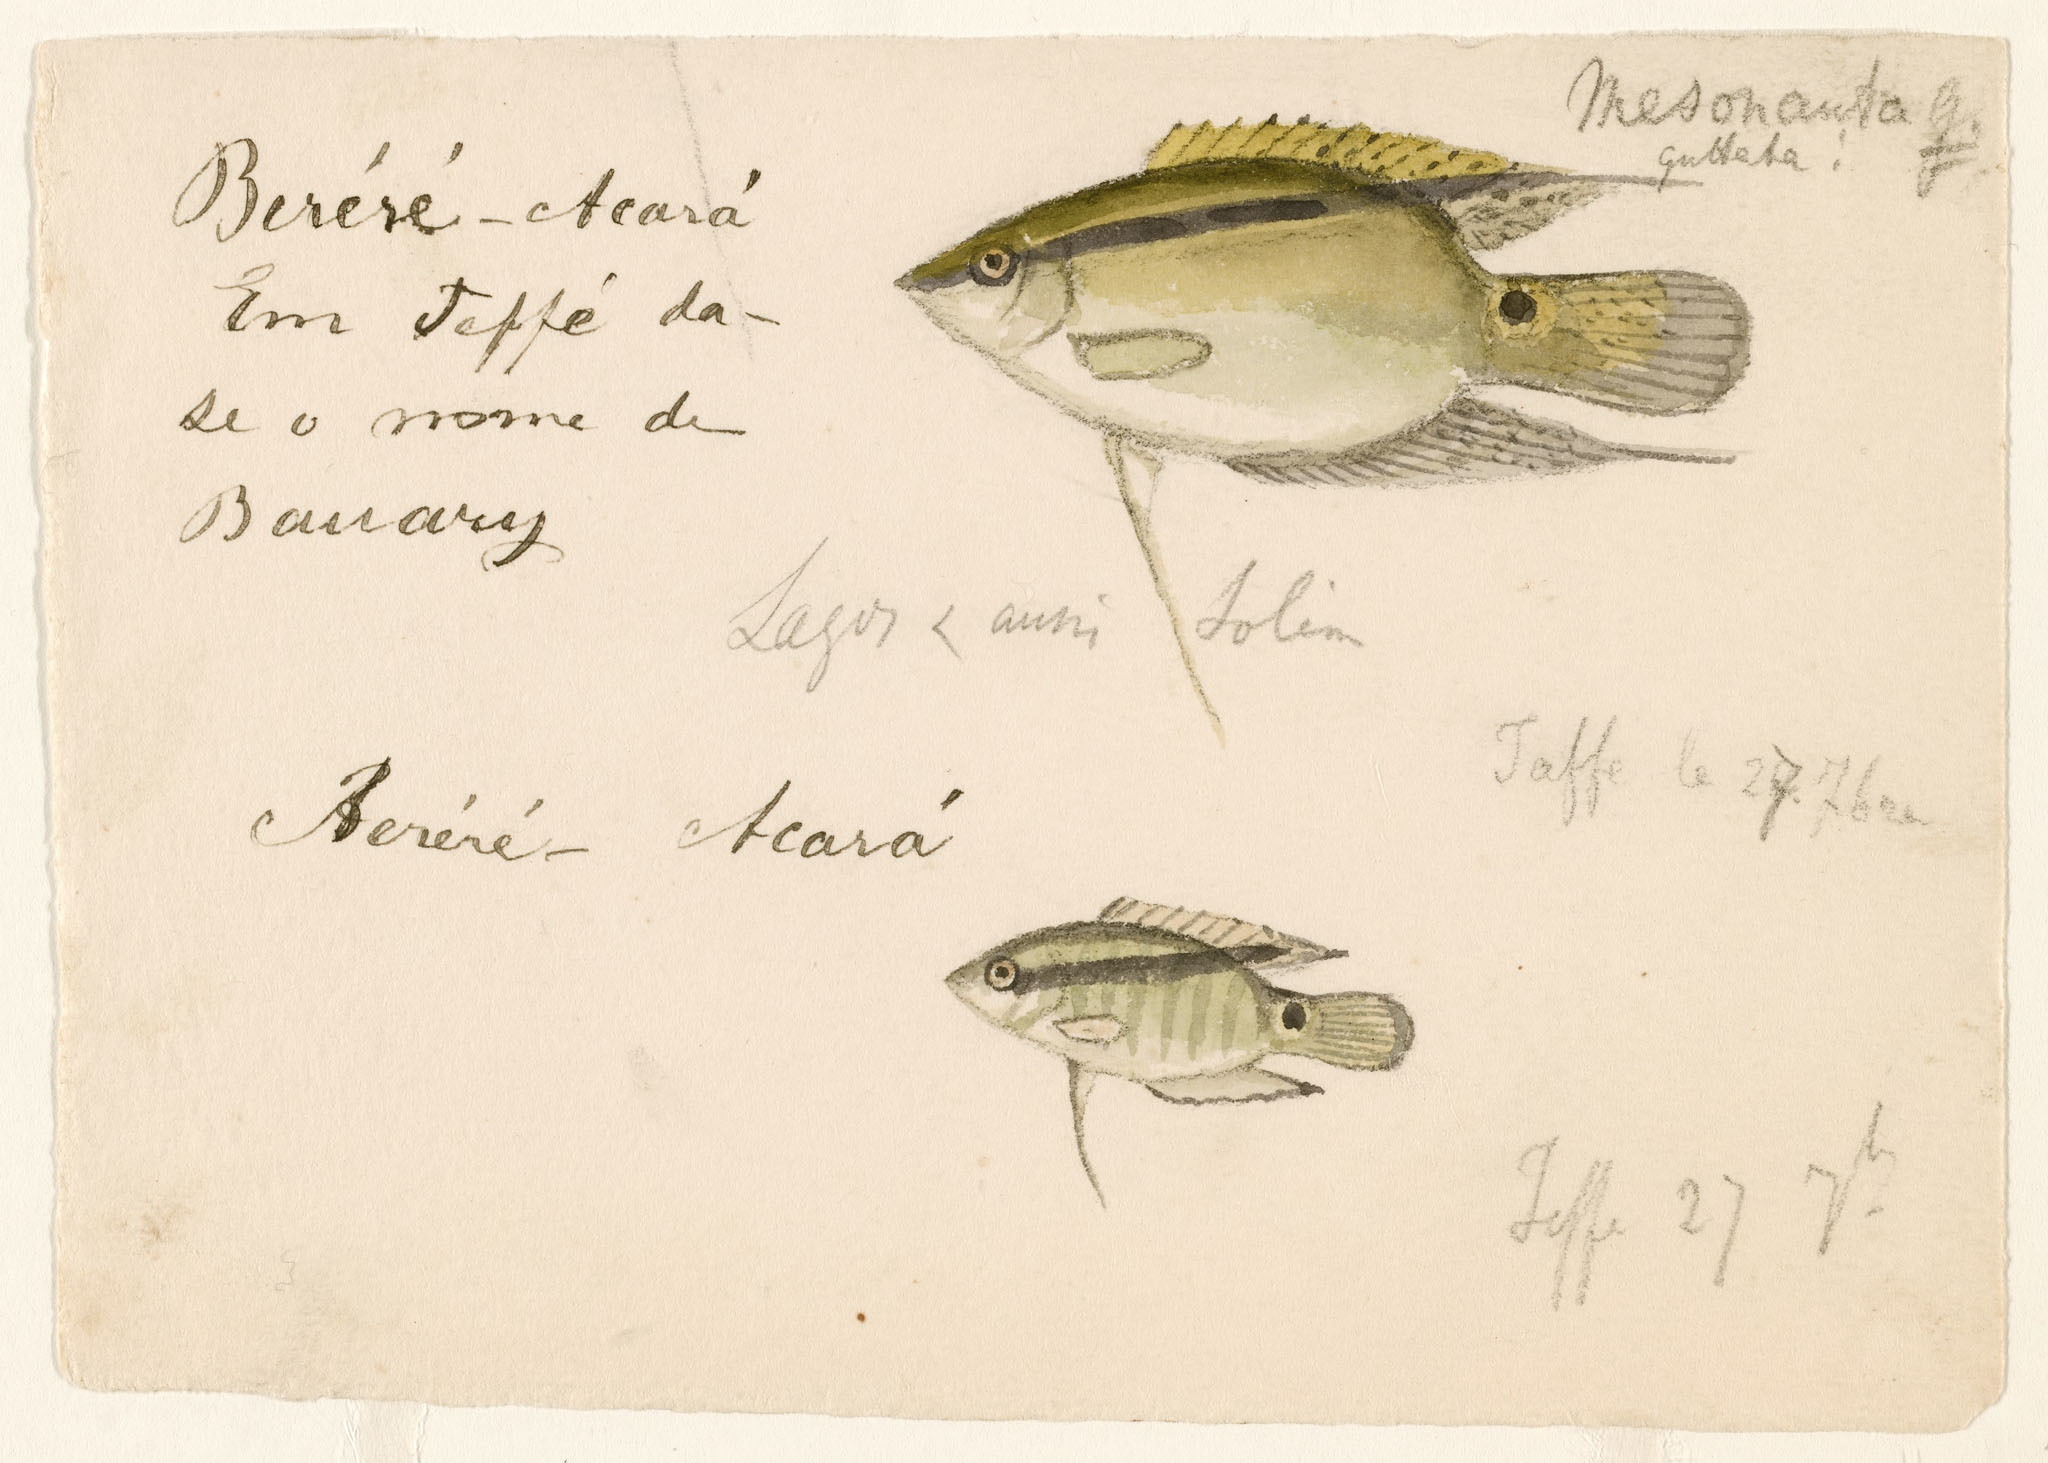 Mesonauta g.
guttata!
Beréré - Acará
Em Teffé da-
se o nome de
Bauary
Lagos & aussi Solim
Taffe le 27. 7bre
Beréré - Acará
Teffe 27 7b.